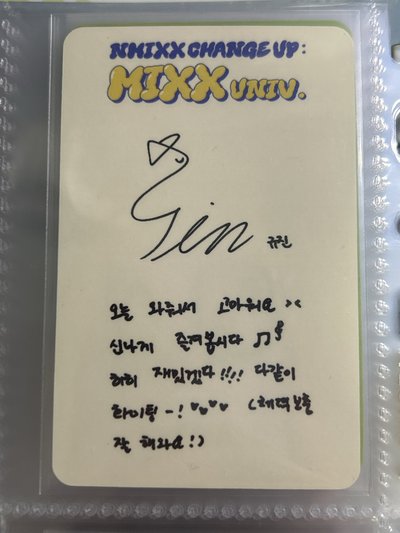 NMIXX CHANGE UP:
MIXX UNIV.
Jin 규진
오늘 와줘서 고마워요 ><
신나게 즐겨봅시다 ♫
히히 재밌겠다 !!!! 다같이
화이팅 ~! ♥♥♥♥ (체력보충
잘 해와요!)